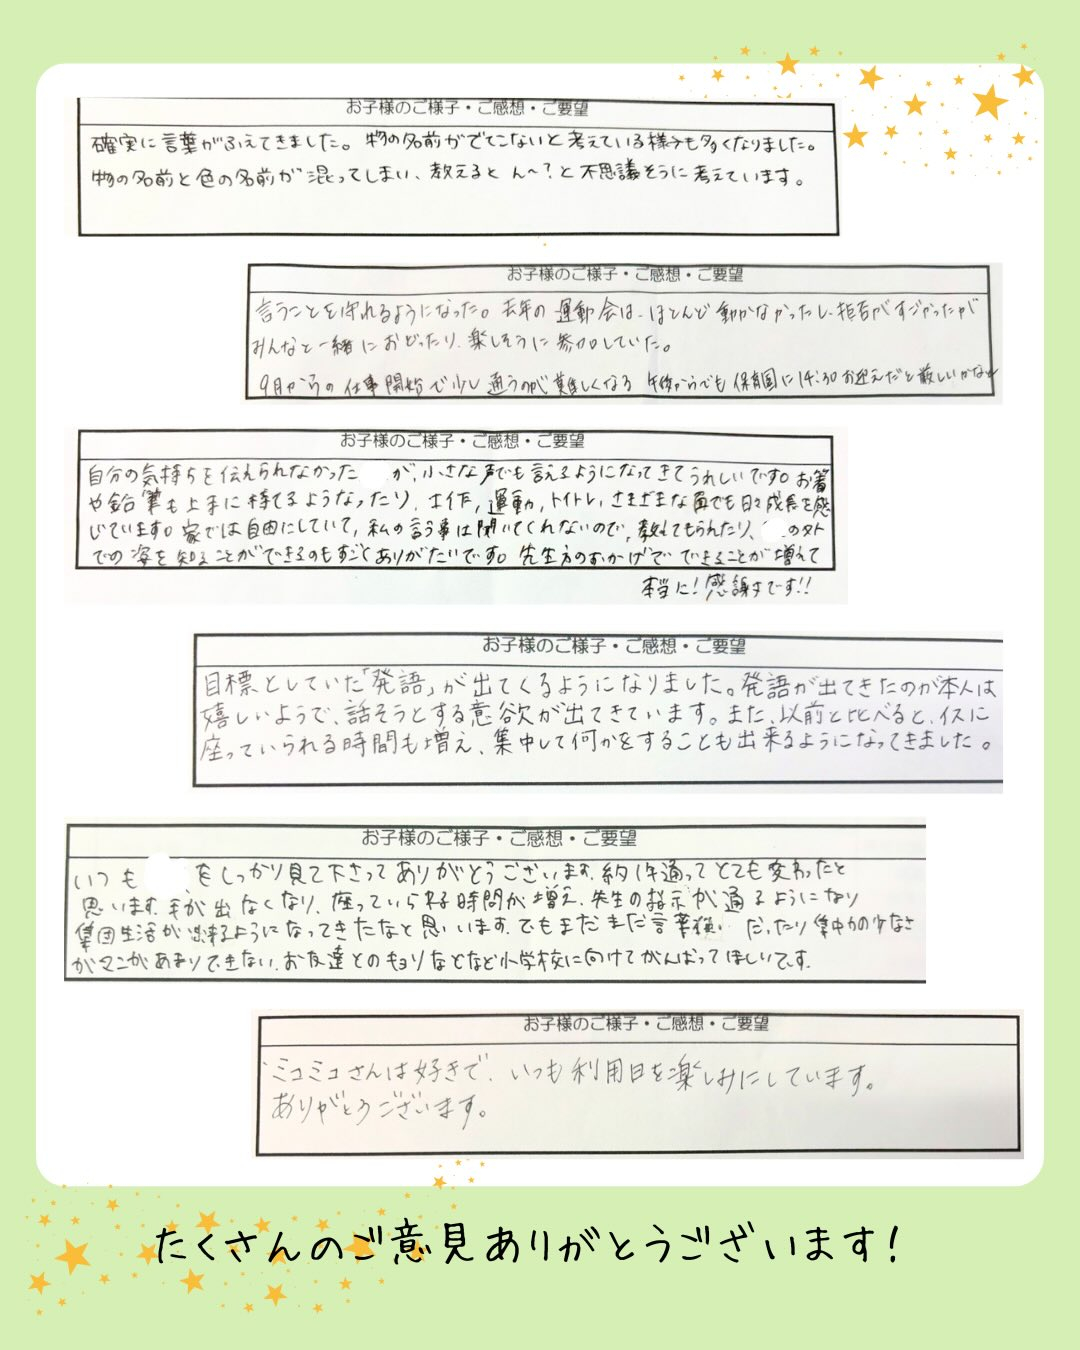 お子様のご様子・ご感想・ご要望
確実に言葉がふえてきました。物の名前がでてこないと考えている様子も多くなりました。
物の名前と色の名前が混ってしまい、教えると ん〜?と不思議そうに考えています。
お子様のご様子・ご感想・ご要望
言うことを守れるようになった。去年の運動会は、ほとんど動かなかったし、拒否がすごかったが
みんなと一緒におどったり、楽しそうに参加していた。
9月からの仕事開始で少し通うのが難しくなる 午後からでも保育園に14:30お迎えだと厳しいかなぁ
お子様のご様子・ご感想・ご要望
自分の気持ちを伝えられなかった が、小さな声でも言えるようになってきてうれしいです。お箸
や鉛筆も上手に持てるようなったり、工作、運動、トイトレ、さまざまな面でも日々成長を感
じています。家では自由にしていて、私の言う事は聞いてくれないので、教えてもらえたり、 の外
での姿を知ることができるのもすごくありがたいです。先生方のおかげで できることが増えて
本当に!感謝です!!
お子様のご様子・ご感想・ご要望
目標としていた「発語」が出てくるようになりました。発語が出てきたのが本人は
嬉しいようで、話そうとする意欲が出てきています。また、以前と比べると、イスに
座っていられる時間も増え、集中して何かをすることも出来るようになってきました。
お子様のご様子・ご感想・ご要望
いつも をしっかり見て下さってありがとうございます。約1年通ってとても変わったと
思います。手が出なくなり、座っていられる時間が増え、先生の指示が通るようになり
集団生活が出来るようになってきたなと思います。でもまだまだ言葉使い だったり集中力の少なさ
がマンがあまりできない、お友達とのキョリなどなど小学校に向けてがんばってほしいです。
お子様のご様子・ご感想・ご要望
ミコミコさんは好きで、いつも利用日を楽しみにしています。
ありがとうございます。
たくさんのご意見ありがとうございます!